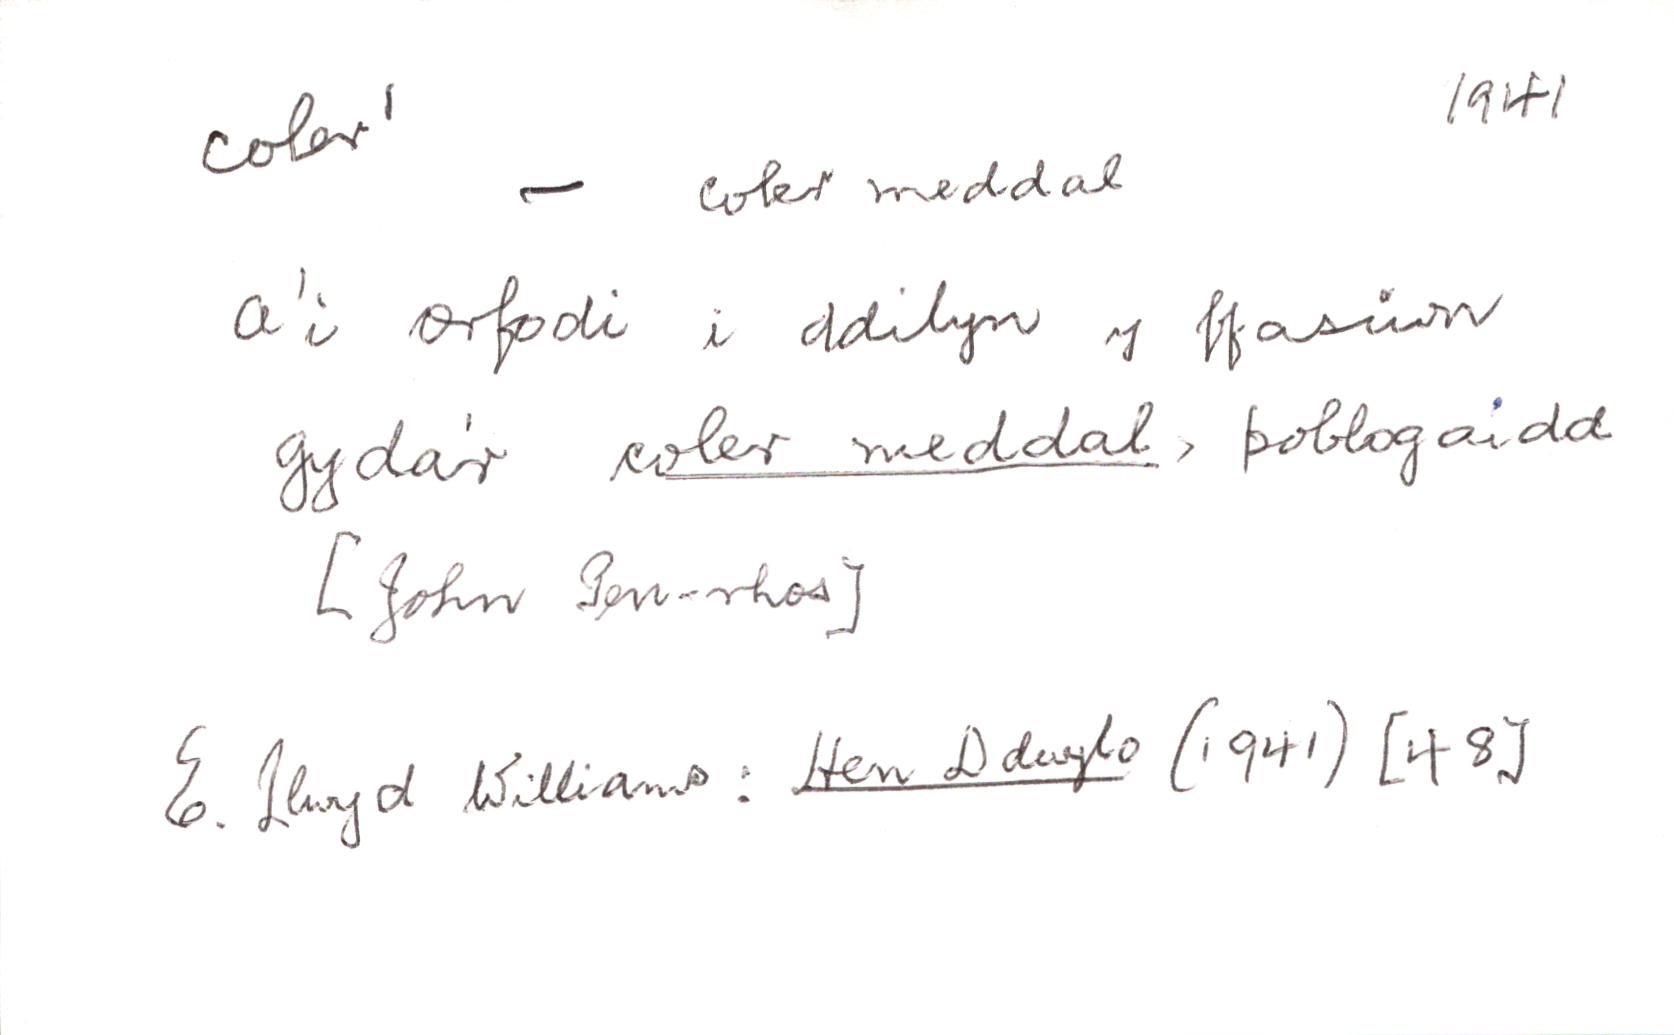 coler¹
1941
— coler meddal
a'i orfodi i ddilyn y ffasiwn
gyda'r coler meddal, poblogaidd
[John Pen-rhos]
E. Llwyd Williams: Hen Ddwylo (1941) [48]